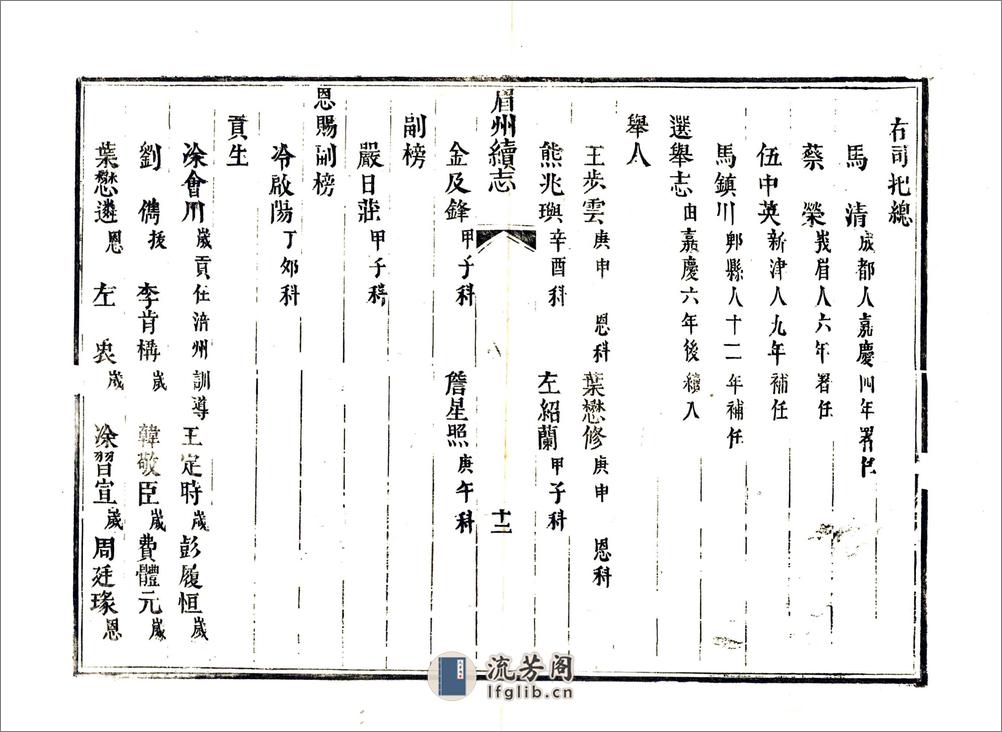 右司把總
馬清成都人嘉慶四年署任
蔡榮峩眉人六年署任
伍中英新津人九年補任
馬鎮川郫縣人十二年補任
選舉志由嘉慶六年後續入
舉人
王步雲庚申恩科葉懋修庚申恩科
熊兆璵辛酉科左紹蘭甲子科
眉州續志
十二
金及鋒甲子科詹星照庚午科
副榜
嚴日莊甲子科
恩賜副榜
冷啟陽丁夘科
貢生
涂會川歲貢任涪州訓導王定時歲彭履恒歲
劉儁拔李肯構歲韓敬臣歲費體元歲
葉懋遴恩左歲涂習宣歲周廷瑑恩
流芳阁
lfglib.cn